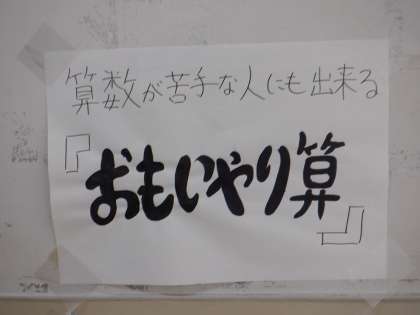 算数が苦手な人にも出来る
『おもいやり算』